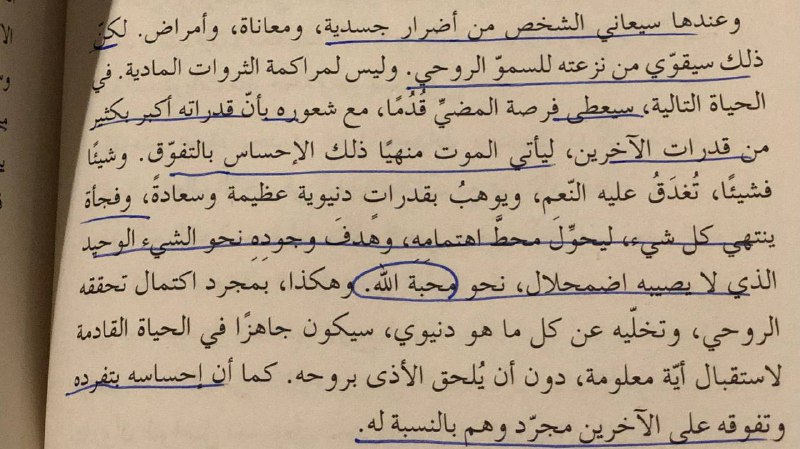 وعندها سيعاني الشخص من أضرار جسدية، ومعاناة، وأمراض. لكنّ
ذلك سيقوّي من نزعته للسموّ الروحي. وليس لمراكمة الثروات المادية. في
الحياة التالية، سيعطى فرصة المضيِّ قُدُمًا، مع شعوره بأنّ قدراته أكبر بكثير
من قدرات الآخرين، ليأتي الموت منهيًا ذلك الإحساس بالتفوّق. وشيئًا
فشيئًا، تُغدَقُ عليه النّعم، ويوهبُ بقدراتٍ دنيوية عظيمة وسعادةً، وفجأة
ينتهي كل شيء، ليحوِّلَ محطَّ اهتمامِهِ، وهدفَ وجودِهِ نحو الشيء الوحيد
الذي لا يصيبه اضمحلال، نحو محبة الله. وهكذا، بمجرد اكتمال تحققه
الروحي، وتخلّيه عن كل ما هو دنيوي، سيكون جاهزًا في الحياة القادمة
لاستقبال أيّة معلومة، دون أن يُلحق الأذى بروحه. كما أن إحساسه بتفرده
وتفوقه على الآخرين مجرّد وهم بالنسبة له.